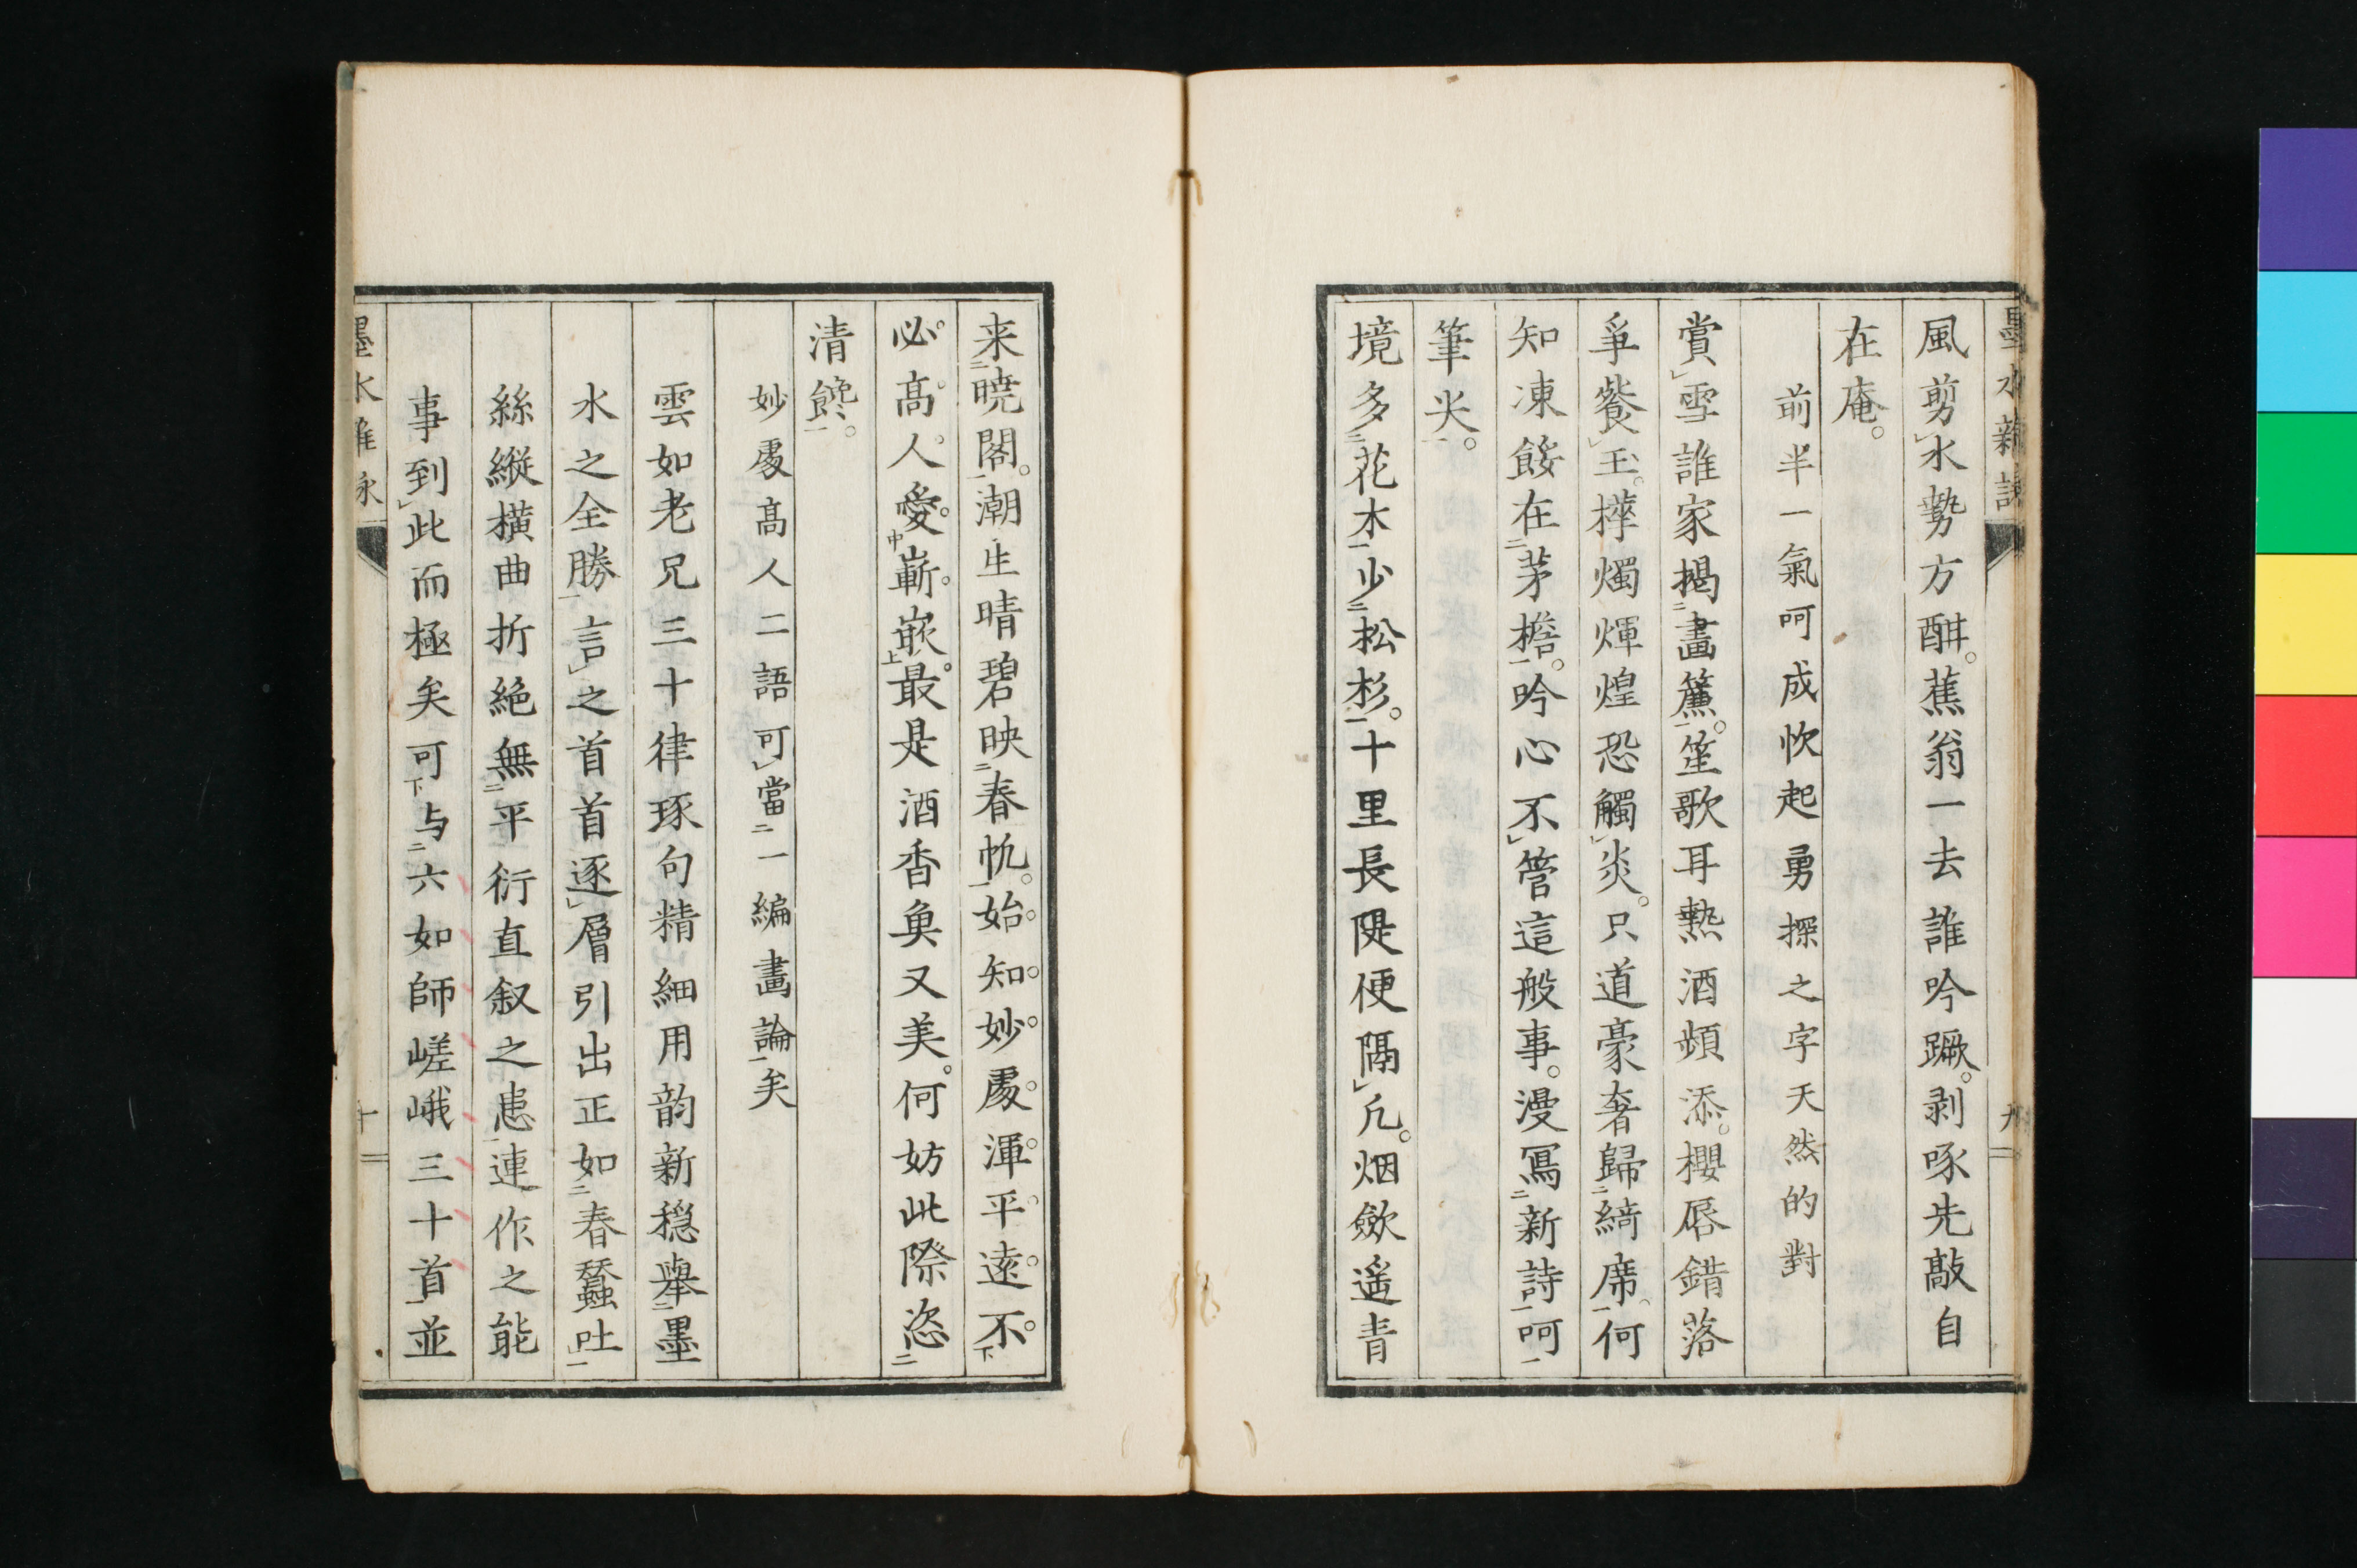 風剪水勢方酣。蕉翁一去誰吟蹶。剥啄先敲自
在庵。
前半一氣呵成忺起勇探之字天然的對
賞雪誰家揭畫簾。笙歌耳熱酒頻添。櫻唇錯落
爭餮玉。攆燭煇煌恐觸炎。只道豪奢歸綺席。何
知凍餒在茅檐。吟心不管這般事。漫冩新詩呵
筆尖。
境多花木少松杉。十里長隄便隔凡。烟斂遥青
来曉閣。潮生晴碧映春帆。始知妙處渾平遠。不
必高人愛嶄嵌。最是酒香魚又美。何妨此際恣
清饞。
妙處高人二語可當一編畫論矣
雲如老兄三十律琢句精細用韵新穏舉墨
水之全勝言之首首逐層引出正如春蠶吐
絲縱横曲折絶無平衍直叙之患連作之能
事到此而極矣可与六如師嵯峨三十首並
墨水雜詠
十